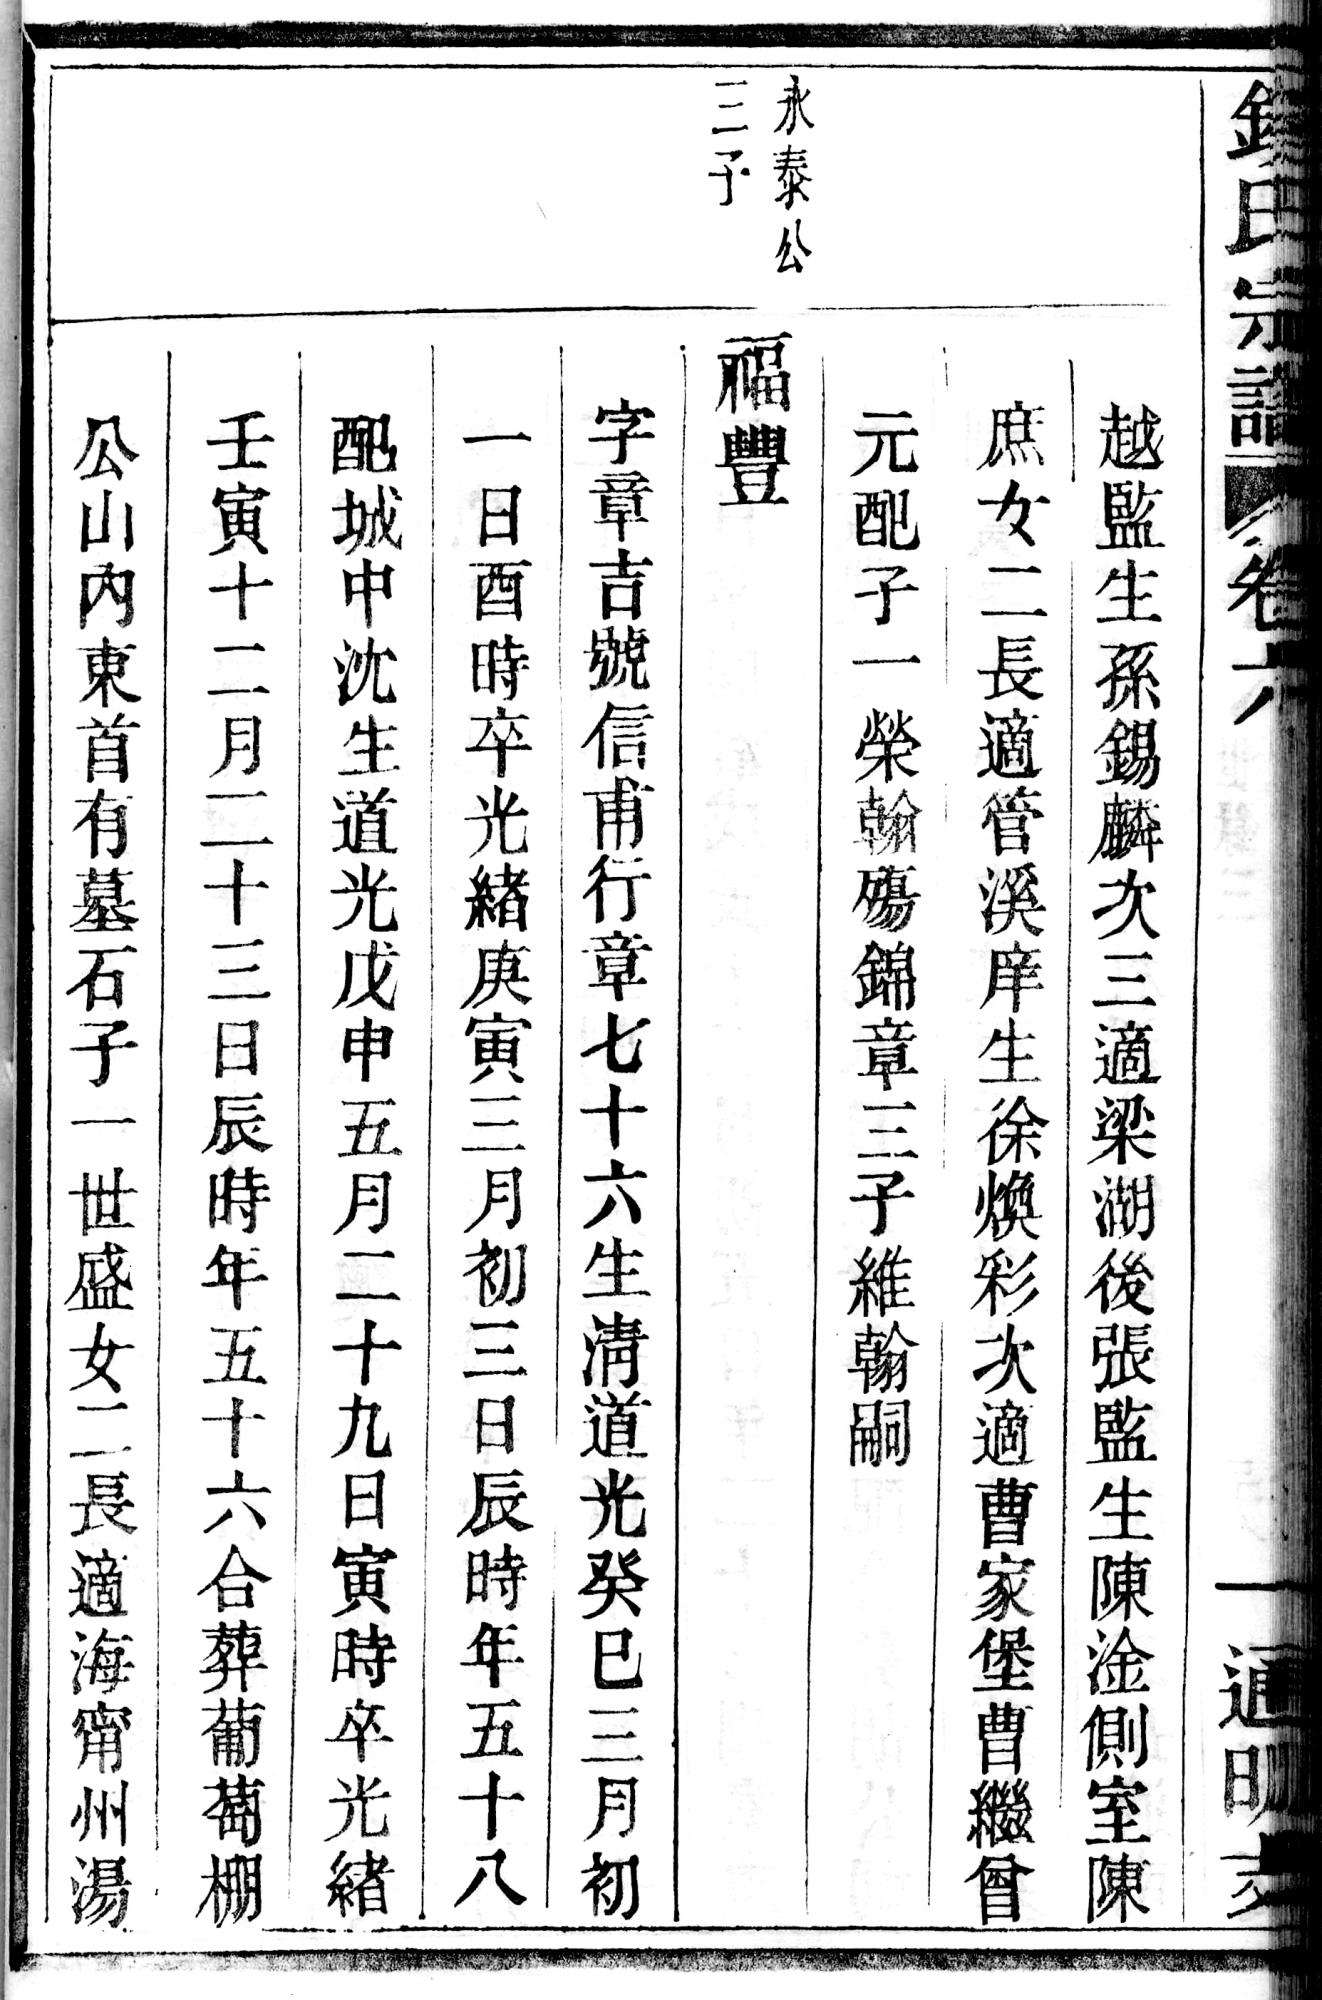 錢氏宗譜 卷六 一 通明支
越監生孫錫麟次三適梁湖後張監生陳淦側室陳
庶女二長適管溪庠生徐煥彩次適曹家堡曹繼曾
元配子一榮翰殤錦章三子維翰嗣
永泰公
三子
福豐
字章吉號信甫行章七十六生淸道光癸巳三月初
一日酉時卒光緒庚寅三月初三日辰時年五十八
配城中沈生道光戊申五月二十九日寅時卒光緒
壬寅十二月二十三日辰時年五十六合葬葡萄棚
公山內東首有墓石子一世盛女二長適海甯州湯